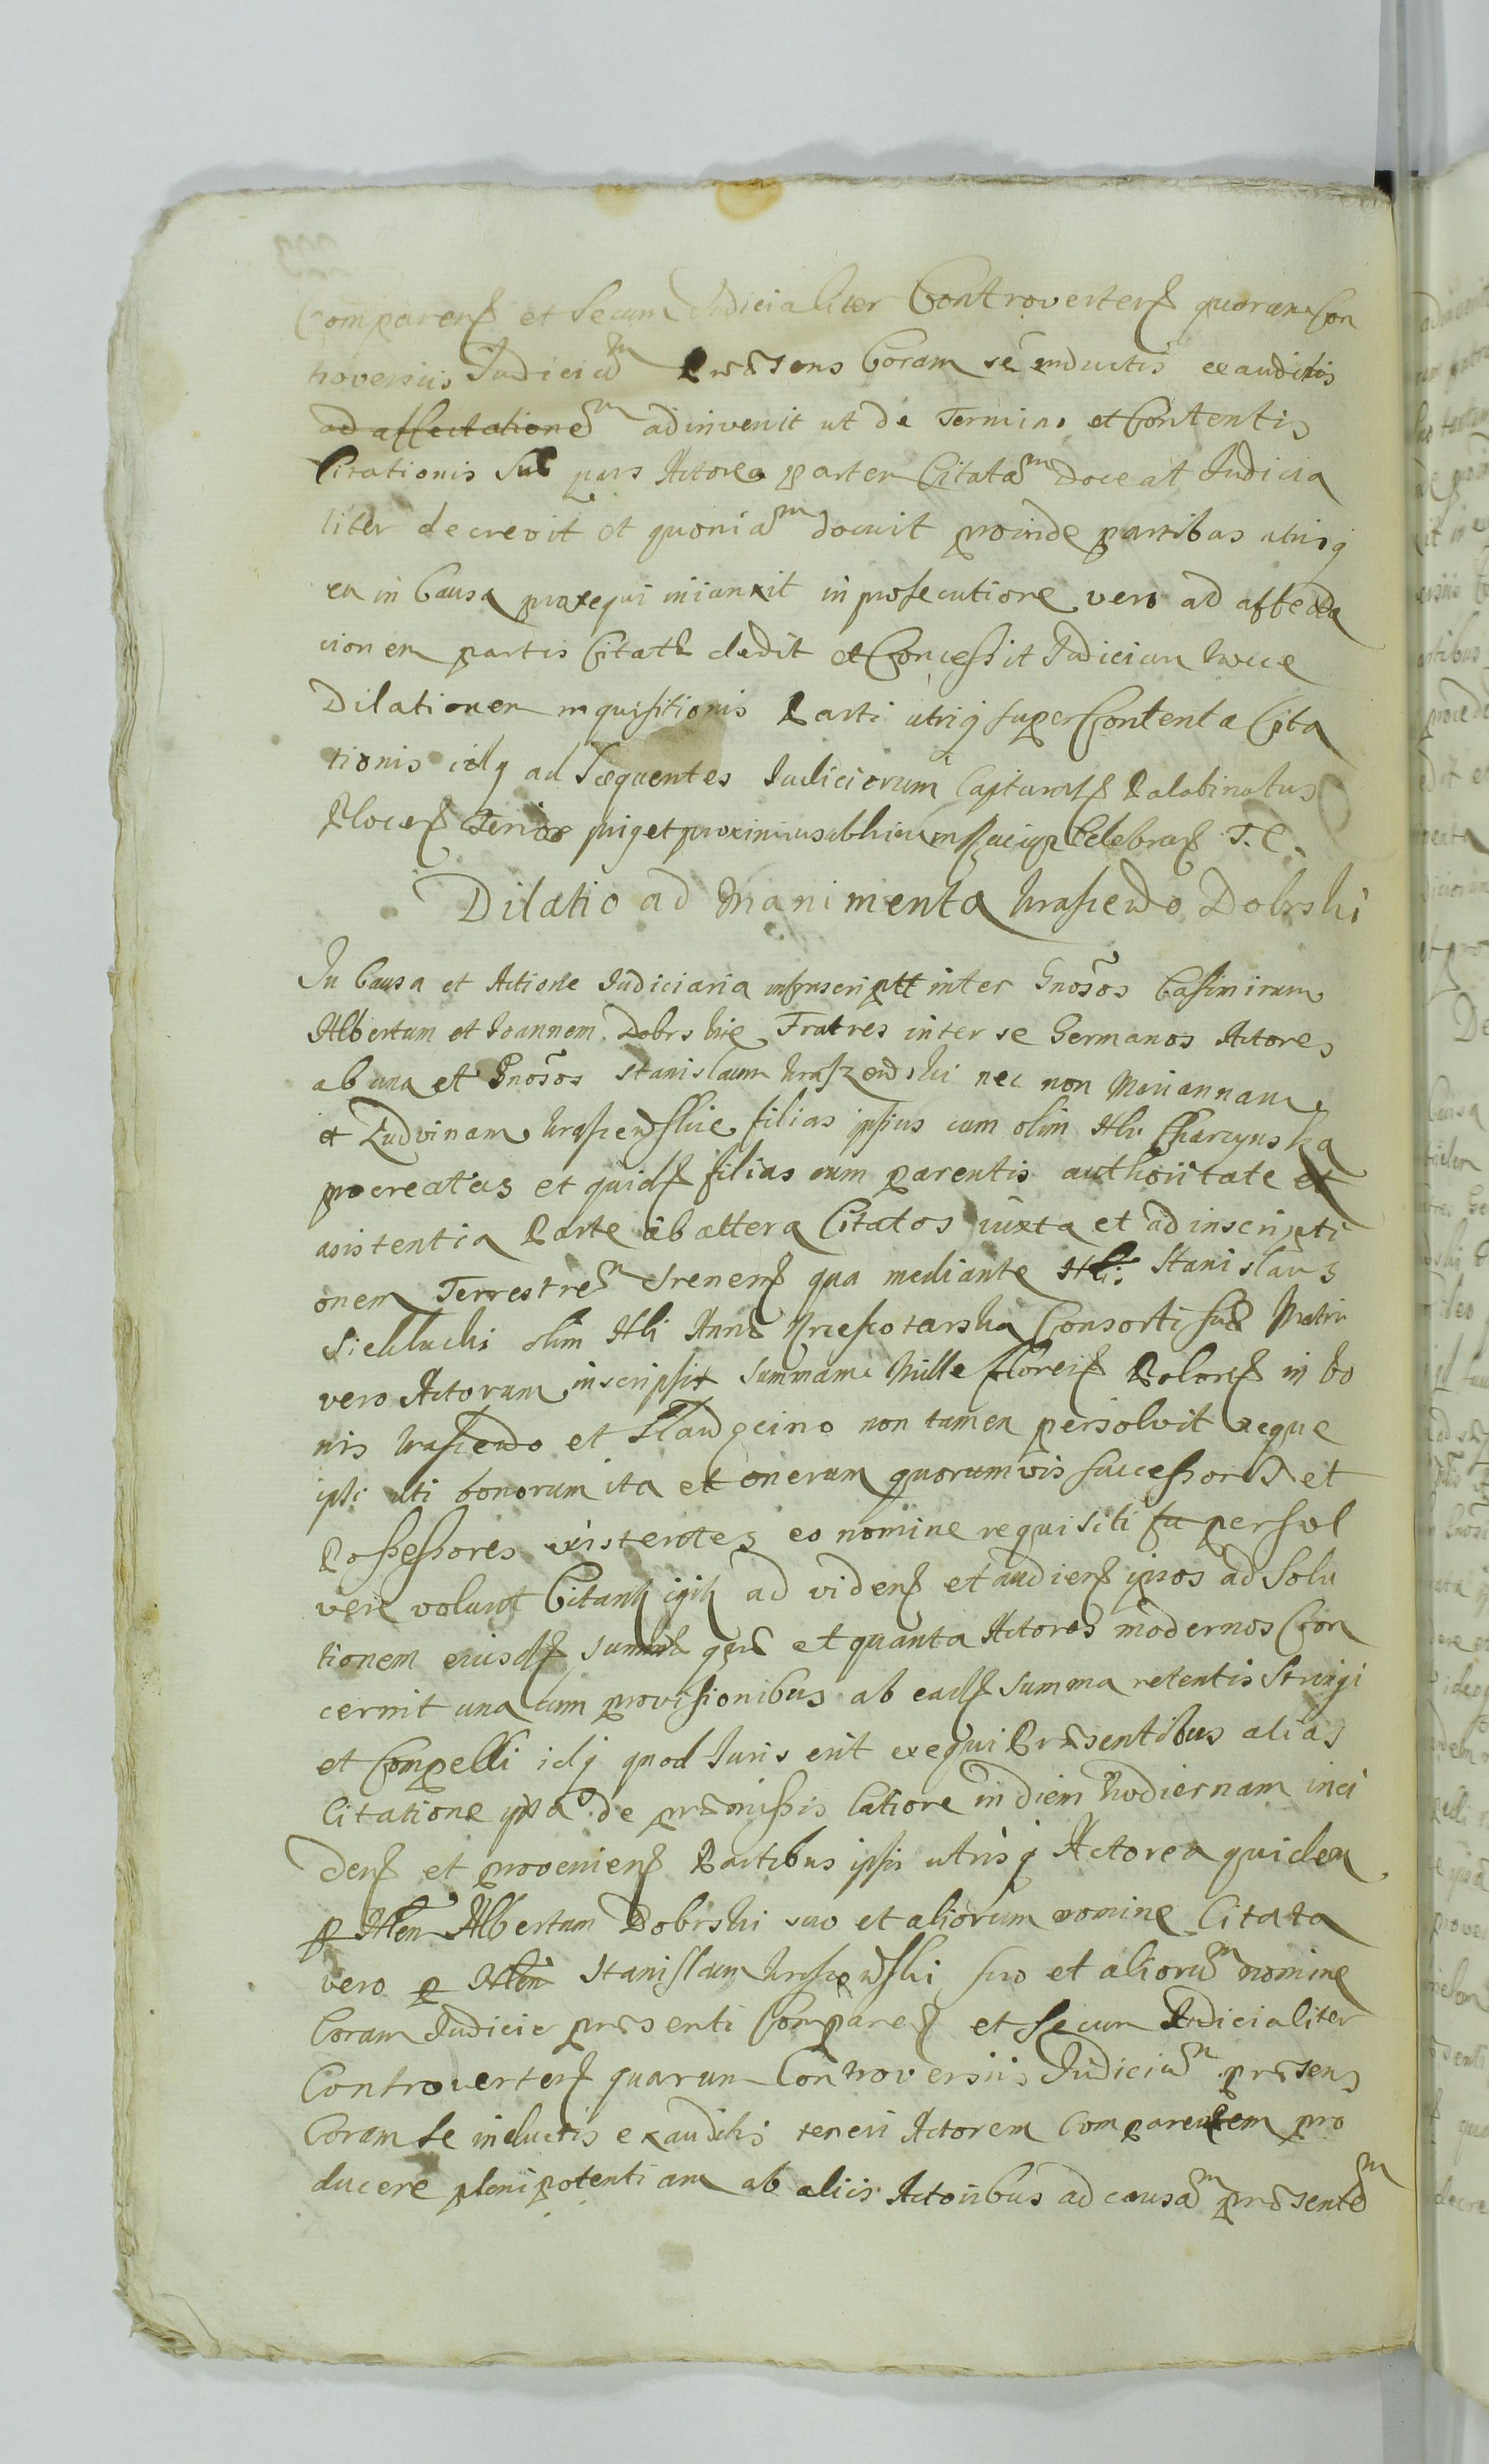 Comparen et secum Judicialiter Controverten quorum Con
troversiis Judiciu Præsens Coram se inductis exauditis
ad affectatione adinvenit ut de Termino et Contentis
Citationis suæ pars Actorea partem Citata Doceat Judicia
liter decrevit et quonia docuit proinde partibus utrisq
ea in Causa proxequi iniunxit in prosecutione vero ad affecta
cionem partis Citatæ dedit et Concessit Judicium hocce
Dilationem inquisitionis Parti utriq super Contenta Cita
tionis idq ad Sequentes Judiciorum Captural Palatinatus
Plocen celebran T. C.
Dilatio ad Munimenta Kraszewo Dobrski
In Causa et Actione Judiciaria infrascriptt inter Gnosos Casimirum
Albertum et Joannem Dobrskie Fratres inter se Germanos Actores
ab una et Gnosos Stanislaum Kraszewski nec non Mariannam
et Ludvinam Kraszewskie filias ipsius cum olim Charcynska
procreatas et quid filias cum parentis authoritate et
asistentia Parte ab altera Citatos iuxta et ad inscripti
onem Terrestre Srenen qua mediante Stanislaus
Sielucki olim Annæ Consorti suæ Matri
vero Actorum inscripsit summam Mille floren Polon in bo
nis Kraszewo et non tamen persolvit neque
ipsi uti bonorum ita et onerum quorumvis successores et
Possessores existentes eo nomine requisiti su persol
vere volunt Citant igit ad viden et audien ipsos ad Solu
tionem eiusd summæ quæ et quanta Actores modernos Con
cernit una cum provisionibus ab ead summa retentis Stringi
et Compelli idq quod Juris erit exequi Præsentibus alias
Citatione ipsa de præmissis latiore in diem hodiernam inci
den et provenien Partibus ipsis utrisq Actorea quidem
p Albertum Dobrski suo et aliorum nomine Citata
vero p Stanislaum Kraszewski suo et alioru nomine
Coram Judicio præsenti Comparen et secum Judicialiter
Controverten quarum Controversiis Judiciu præsens
Coram se inductis exauditis teneri Actorem Comparentem pro
ducere plenipotentiam ab aliis Actoribus ad causa præsente